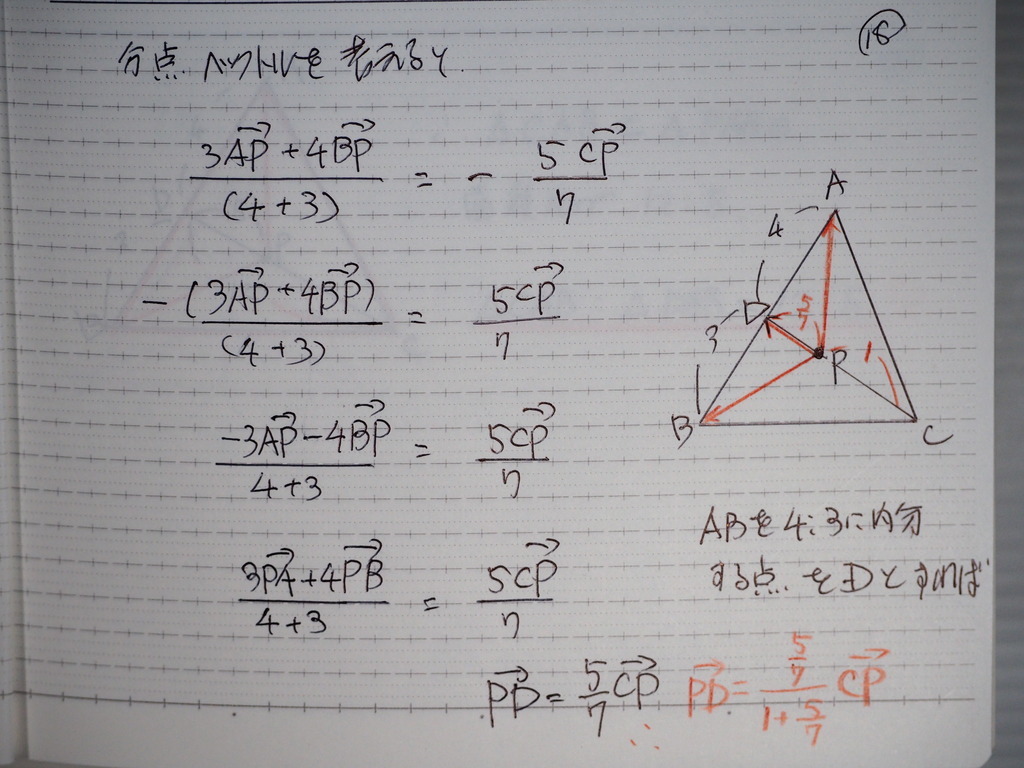 ⑱
分点ベクトルを考えると
(3AP→ + 4BP→)/(4+3) = - 5CP→/7
-(3AP→ + 4BP→)/(4+3) = 5CP→/7
(-3AP→ - 4BP→)/(4+3) = 5CP→/7
(3PA→ + 4PB→)/(4+3) = 5CP→/7
PD→ = 5/7 CP→ ∴ PD→ = (5/7)/(1+5/7) CP→
A
4
D
5/7
3
P
1
B
C
ABを4:3に内分
する点をDとすれば